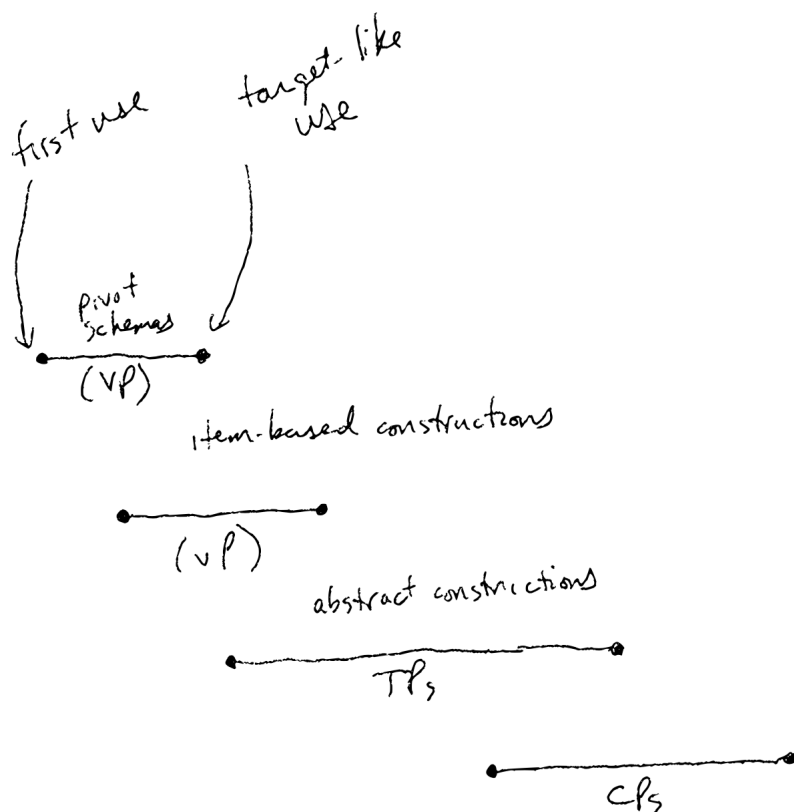 first use
target-like
use
pivot
schemas
(VP)
item-based constructions
(vP)
abstract constrictions
TPs
CPs